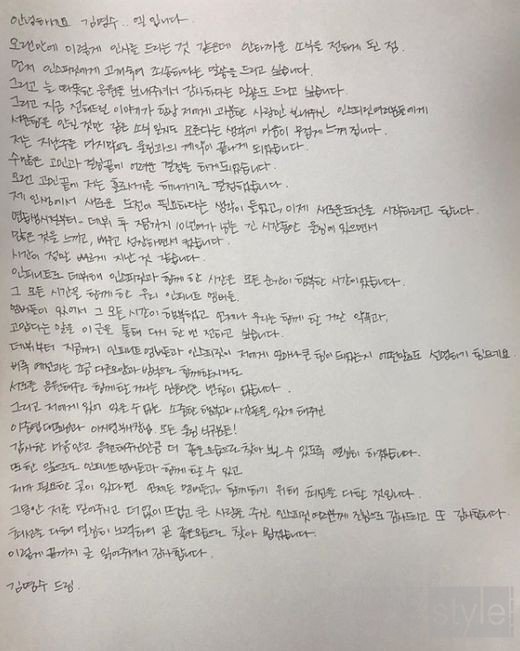 안녕하세요 김명수.. 엘 입니다.
오랜만에 이렇게 인사를 드리는 것 같은데 안타까운 소식을 전하게 된 점,
먼저 인스피릿에게 고개숙여 죄송하다는 말씀을 드리고 싶습니다.
그리고 늘 따뜻한 응원을 보내주셔서 감사하다는 말씀도 드리고 싶습니다.
그리고 지금 전해드릴 이야기가 항상 저에게 과분한 사랑만 보내주신 인스피릿여러분들에게
서운함을 안길 것만 같은 소식 일지도 모른다는 생각에 마음이 무겁게 느껴집니다.
저는 지난주를 마지막으로 울림과의 계약이 끝나게 되었습니다.
수많은 고민과 결정끝에 어려운 결정을 하게되었습니다.
오랜 고민끝에 저는 홀로서기를 해나가기로 결정했습니다.
제 인생에서 새로운 도전이 필요하다는 생각이 들었고, 이제 새로운도전을 시작하려고 합니다.
연습생시절부터- 데뷔 후 지금까지 10년여가 넘는 긴 시간동안 울림에 있으면서
많은 것을 느끼고, 배우고 성장하면서 컸습니다.
시간이 정말 빠르게 지난 것 같습니다.
인피니트로 데뷔해 인스피릿과 함께 한 시간은 모든 순간이 행복한 시간이었습니다.
그 모든 시간을 함께 한 우리 인피니트 멤버들.
멤버들이 있어서 그 모든 시간이 행복했고 언제나 우리는 함께 할 거란 약속과,
고맙다는 말을 이 글을 통해 다시 한 번 전하고 싶습니다.
데뷔부터 지금까지 인피니트 멤버들과 인스피릿이 저에게 얼마나 큰 힘이 되었는지 어떤말로도 설명하기 힘드네요.
비록 예전과는 조금 다른모습과 방식으로 함께하겠지만
서로를 응원해주고 함께 할 거라는 믿음만은 변함이 없습니다.
그리고 저에게 잊지 못할 수 없는 소중한 행복과 시간들을 있게 해주신
이중엽대표님과 이기영부사장님. 모든 울림 식구분들!
감사한 마음안고 응원해주신만큼 더 좋은모습으로 찾아 뵐 수 있도록 열심히 하겠습니다.
또한 앞으로도 인피니트 멤버들과 함께 할 수 있고
제가 필요한 곳이 있다면 언제든 멤버들과 함께하기 위해 최선을 다할 것입니다.
그동안 저를 믿어주시고 더 없이 뜨겁고 큰 사랑을 주신 인스피릿 여러분께 진심으로 감사드리고 또 감사합니다.
최선을 다해 열심히 노력하여 곧 좋은모습으로 찾아 뵙겠습니다.
이렇게 끝까지 글 읽어주셔서 감사합니다.
김명수 드림.
style